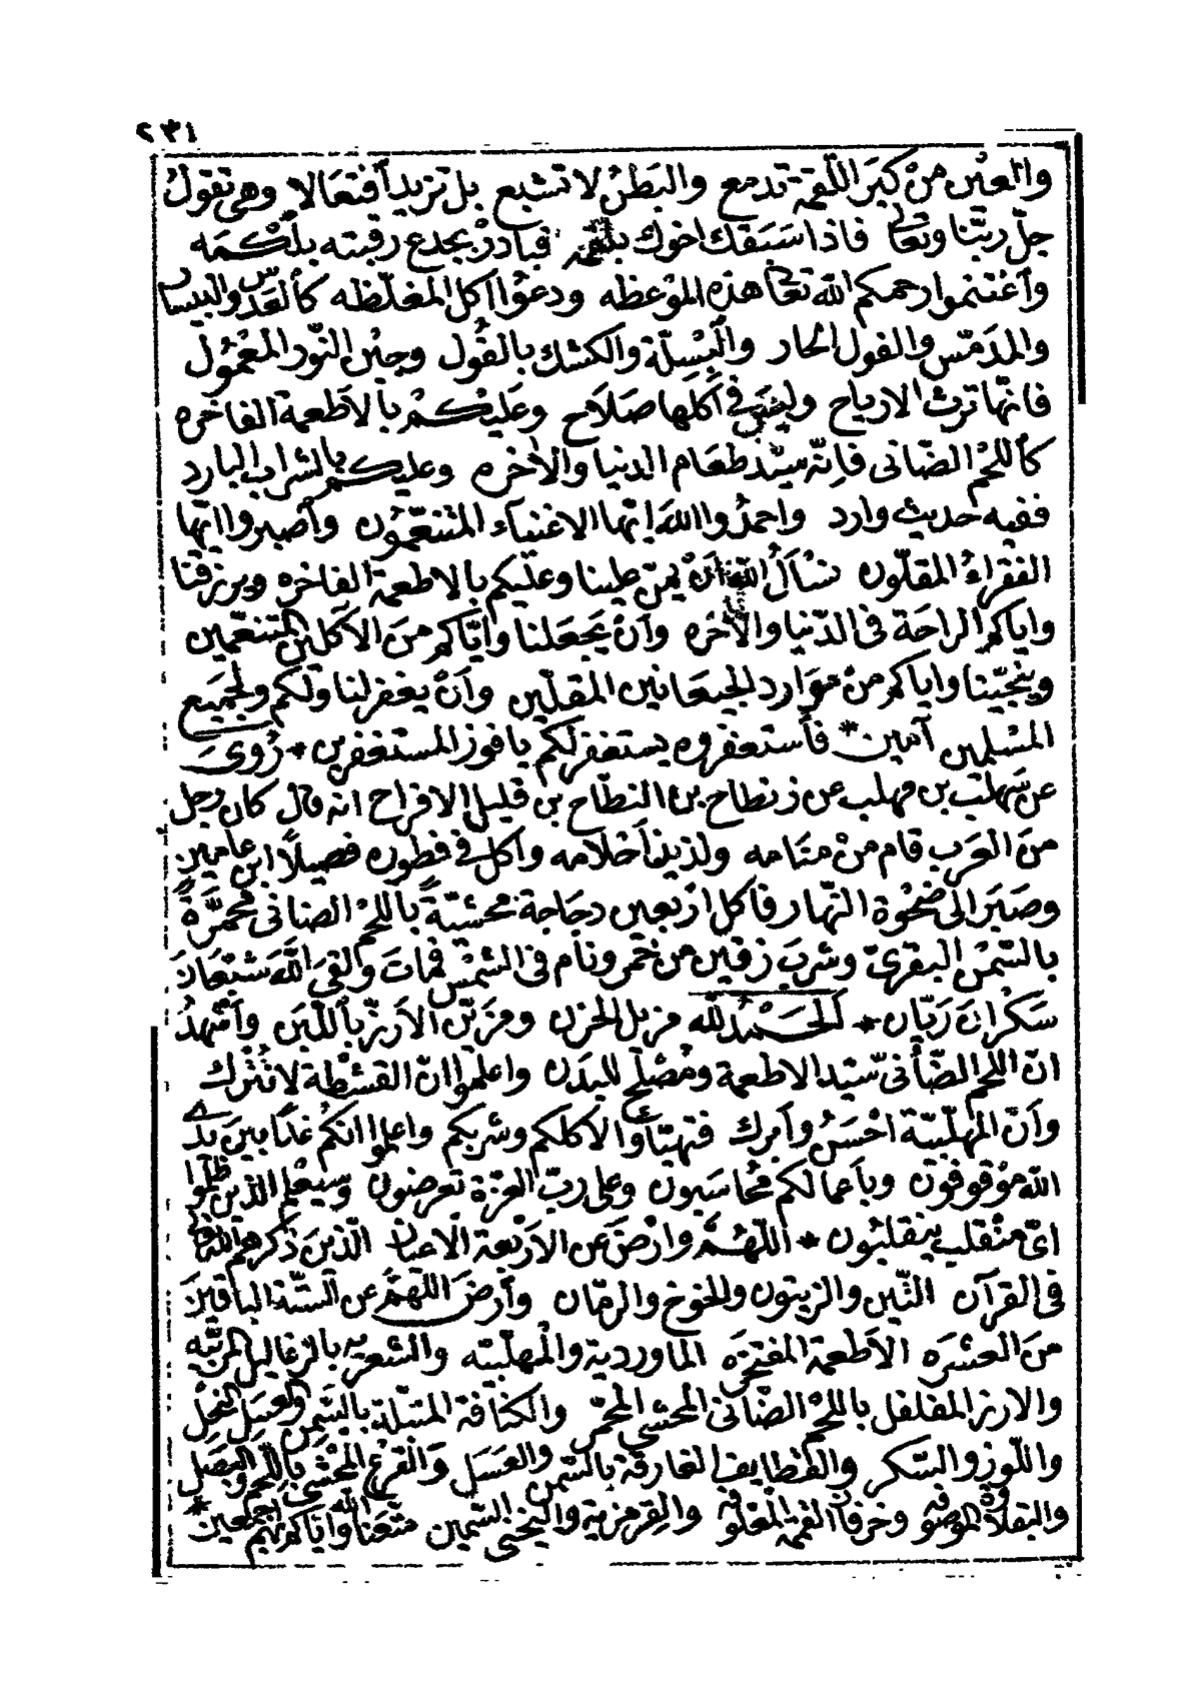 ٢٣١
والعين من كبر اللقمة تدمع والبطن لا تشبع بل تزيد أفتعالا وهي تقول
جلّ ربّنا وتعالى فاذا سبقك اخوك بلقمة فبادر بجدع رقبته بلكمه
وأغتنموا رحمكم الله تعالى هذه الموعظه ودعوا اكل المغلظه كألعدس والبيسار
والمدمّس والفول الحار والبسلّة والكشك بالفول وجبن النّورد المعمول
فانها ترث الارياح وليس في أكلها صلاح وعليكم بألاطعمة الفاخره
كأللحم الضّانى فإنّه سيّد طعام الدنيا والأخره وعليكم بالشراب البارد
ففيه حديث وارد واحمدوا الله ايّها الاغنياء المتنعّمون وأصبروا ايّها
الفقراء المقلّون نسأل الله أن يمنّ علينا وعليكم بالاطعمة الفاخره ويرزقنا
وايّاكم الراحة فى الدّنيا والأخره وأن يجعلنا وايّاكم من الآكلين المتنعّمين
وينجّينا واياكم من موارد الجيعانين المقلّين وأن يغفر لنا ولكم ولجميع
المسلمين آمين * فأستغفروه يستغفر لكم يا فوز المستغفرين * روى
عن سهلب بن مهلب عن زنطاح بن النطّاح بن قليل الافراح انه قال كان رجل
من العرب قام من منامه ولذيذ أحلامه وأكل فى فطوره فصيلاً ابن عامين
وصبر الى ضحوة النهار فأكل اربعين دجاجة محشيّة باللحم الضانى محمّرة
بالسّمن البقرىّ وشرب زقين من خمر ونام فى الشمس فمات ولقى الله شبعان
سكران ريّان * الحمد لله مزيل الحزن ومزيّن الأرزّ بأللبن وأشهد
انّ اللحم الضّأنى سيّد الاطعمة ومصلح للبدن واعلموا انّ القشطة لا تترك
وأنّ المهلبيّة احسن وأبرك فتهيّأوا لاكلكم وشربكم واعلموا انكم غدا بين يدى
الله موقوفون وبأعمالكم محاسبون وعلى ربّ العزة تعرضون وسيعلم الذين ظلموا
اىّ منقلب ينقلبون * اللهمّ وارض عن الاربعة الاعيان الّذين ذكرهم الله
فى القرآن التّين والزيتون والخوخ والرمّان وأرض اللهمّ عن السّتة الباقين
من العشره الأطعمة المفتخره الماوردية والمهلبيّه والشعريه بالزغاليل المربّيه
والارز المفلفل باللحم الضّانى المحشى المحمّر والكنافة المتبّلة بالسّمن والعسل النحل
واللوز والسّكر والقطايف الغارقة بالسّمن والعسل والقرع المحشى باللحم والبصل
والبقلاوة الموصوفه وخرفان القمة المعلوفه والقرمزية واليخنى السّمين متّعنا الله وايّاكم بهم اجمعين *